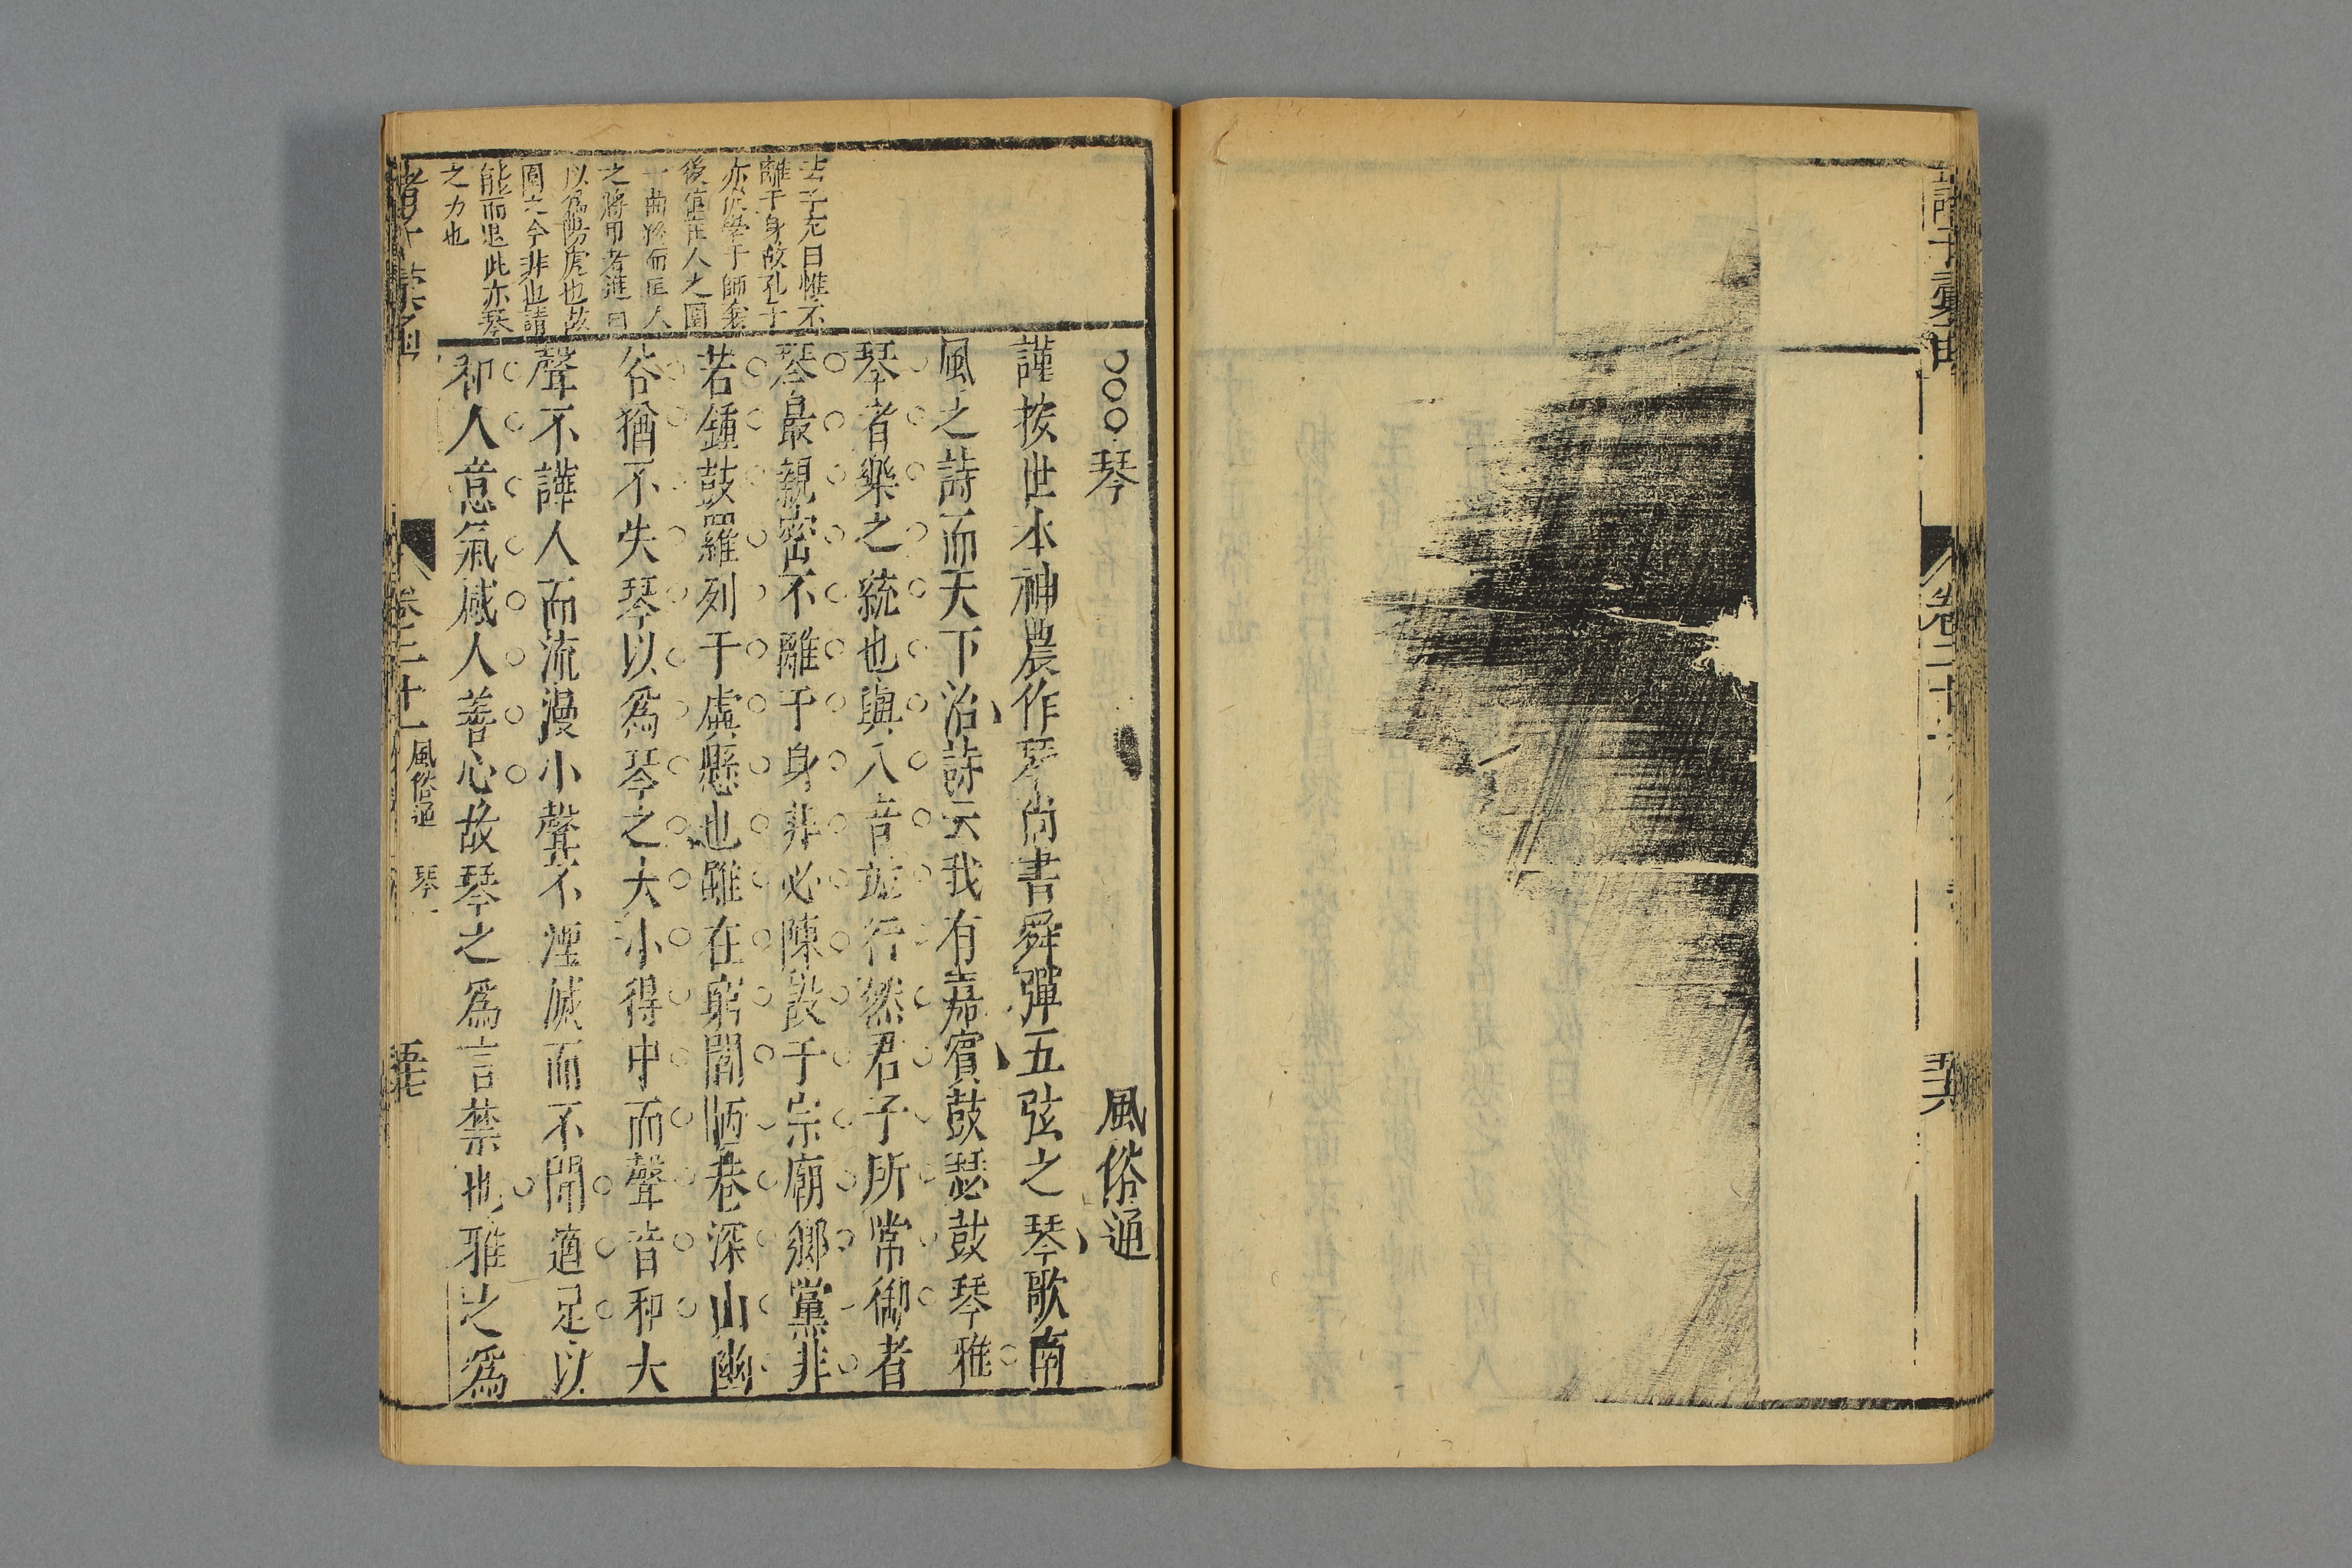 卷二十
○○○琴 風俗通
謹按世本神農作琴尚書舜彈五弦之琴歌南
風之詩而天下治詩云我有嘉賓鼓瑟鼓琴雅
琴者樂之統也與八音並行然君子所常御者
琴最親密不離于身非必陳設于宗廟鄉黨非
若鍾鼓羅列于虡懸也雖在窮閻陋巷深山幽
谷猶不失琴以爲琴之大小得中而聲音和大
聲不譁人而流漫小聲不湮滅而不聞適足以
和人意氣感人善心故琴之爲言禁也雅之爲
子充曰惟不
離于身故孔子
亦從學于師襄
後値匡人之圍
一曲終而匡人
之將甲者進曰
以爲陽虎也故
圍之今非也請
能而退此亦琴
之力也
諸子彙函
卷二十一
風俗通 琴一